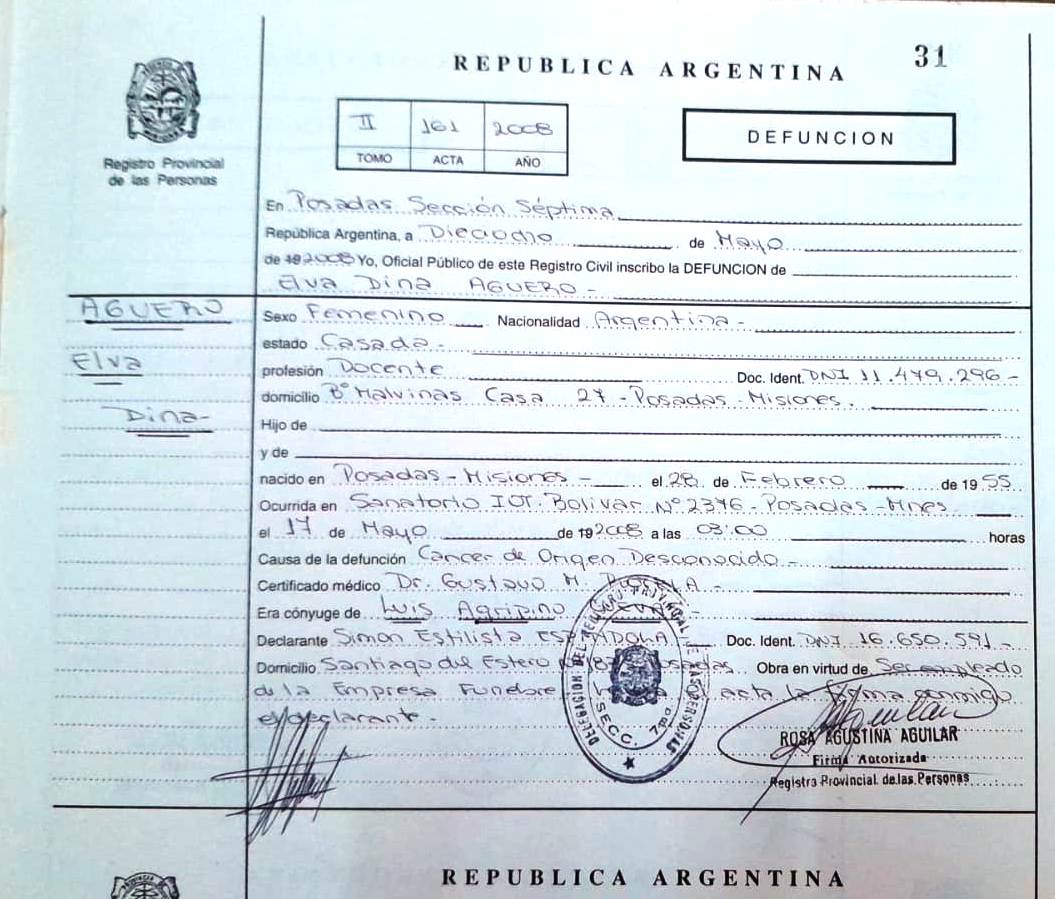 31
REPUBLICA ARGENTINA
II 161 2008
TOMO ACTA AÑO
DEFUNCION
Registro Provincial
de las Personas
En Posadas Sección Séptima
República Argentina, a Dieciocho de Mayo
de 192008 Yo, Oficial Público de este Registro Civil inscribo la DEFUNCION de
Elva Dina AGUERO -
AGUERO
Elva
Dina-
Sexo Femenino Nacionalidad Argentina -
estado Casada -
profesión Docente Doc. Ident. DNI 11.479.296 -
domicilio Bº Malvinas Casa 27 - Posadas - Misiones.
Hijo de
y de
nacido en Posadas - Misiones - el 28 de Febrero de 1955
Ocurrida en Sanatorio IOT. Bolivar Nº 2376 - Posadas - Mnes
el 17 de Mayo de 192008 a las 03:00 horas
Causa de la defunción Cancer de Origen Desconocido -
Certificado médico Dr. Gustavo M.
Era cónyuge de Luis Agripino
Declarante Simon Estilista ESPINDOLA Doc. Ident. DNI 16.650.591 -
Domicilio Santiago del Estero Posadas. Obra en virtud de Ser empleado
de la Empresa Funebre acta la firma conmigo
el declarante -
DELEGACION DEL REGISTRO PROVINCIAL DE LAS PERSONAS
SECC. 7ma
ROSA AGUSTINA AGUILAR
Firma Autorizada
Registro Provincial de las Personas
REPUBLICA ARGENTINA